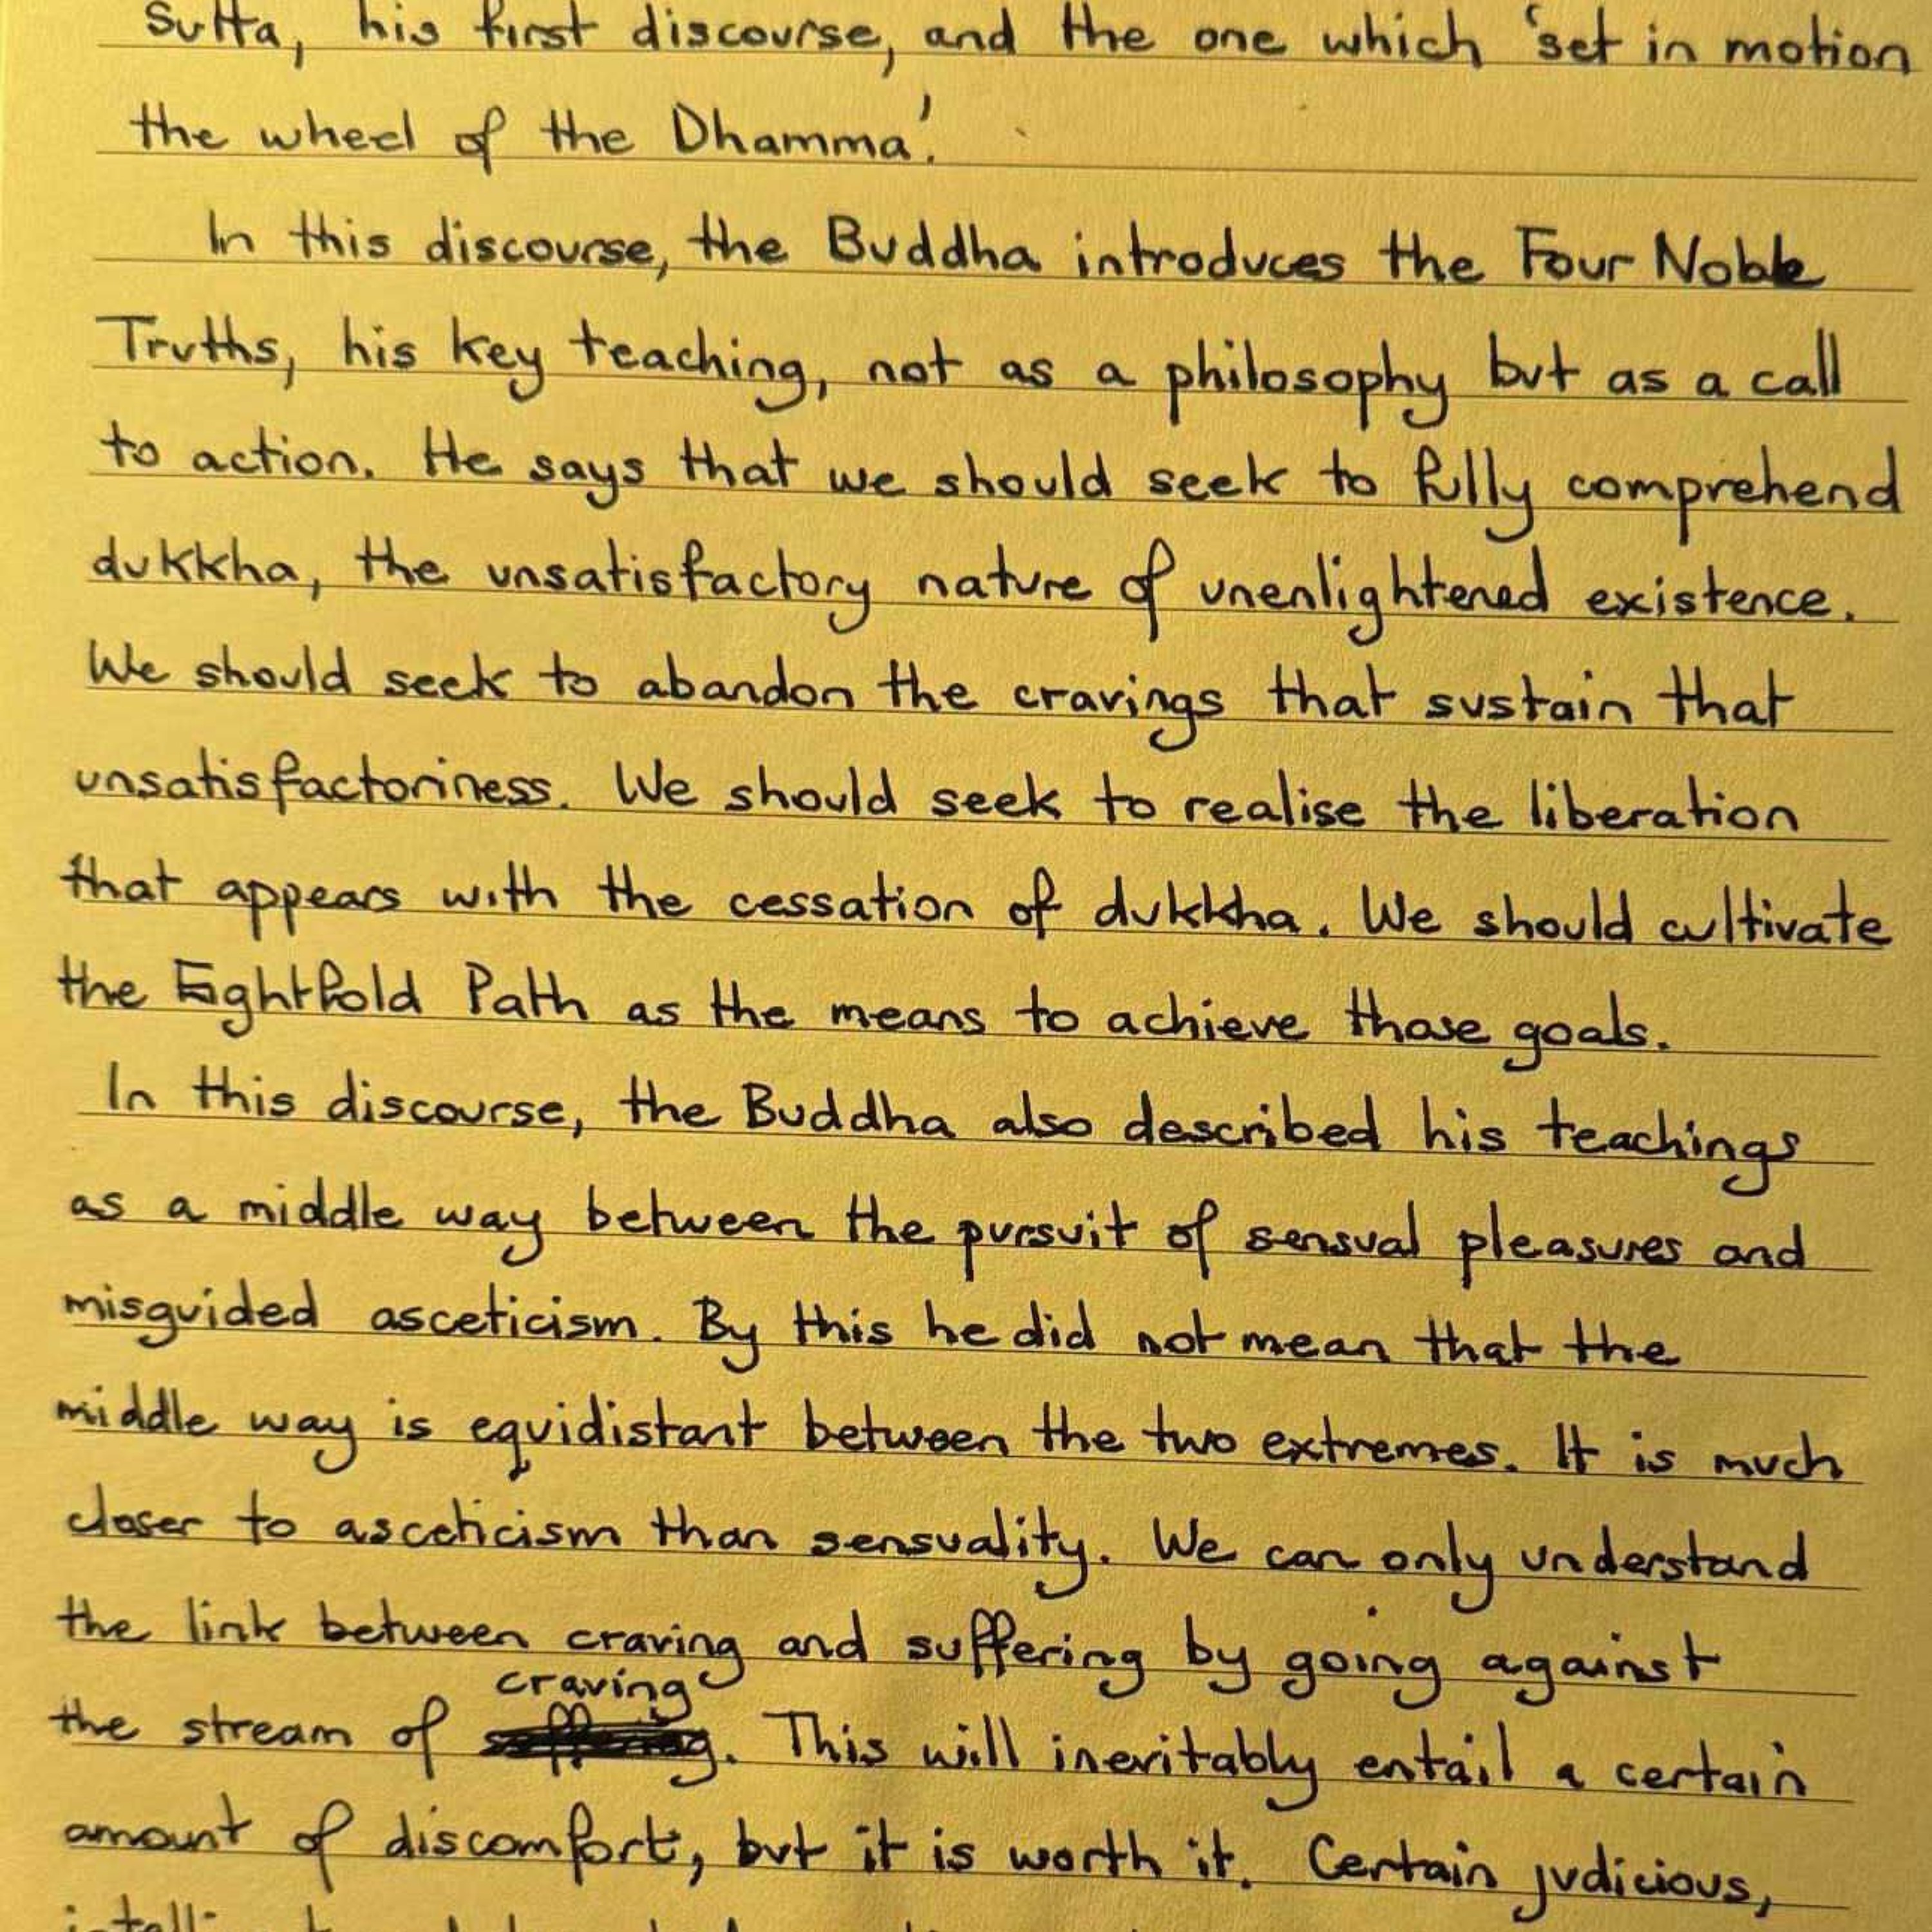 Sutta, his first discourse, and the one which 'set in motion
the wheel of the Dhamma'.
In this discourse, the Buddha introduces the Four Noble
Truths, his key teaching, not as a philosophy but as a call
to action. He says that we should seek to fully comprehend
dukkha, the unsatisfactory nature of unenlightened existence.
We should seek to abandon the cravings that sustain that
unsatisfactoriness. We should seek to realise the liberation
that appears with the cessation of dukkha. We should cultivate
the Eightfold Path as the means to achieve those goals.
In this discourse, the Buddha also described his teachings
as a middle way between the pursuit of sensual pleasures and
misguided asceticism. By this he did not mean that the
middle way is equidistant between the two extremes. It is much
closer to asceticism than sensuality. We can only understand
the link between craving and suffering by going against
craving
the stream of suffering. This will inevitably entail a certain
amount of discomfort, but it is worth it. Certain judicious,